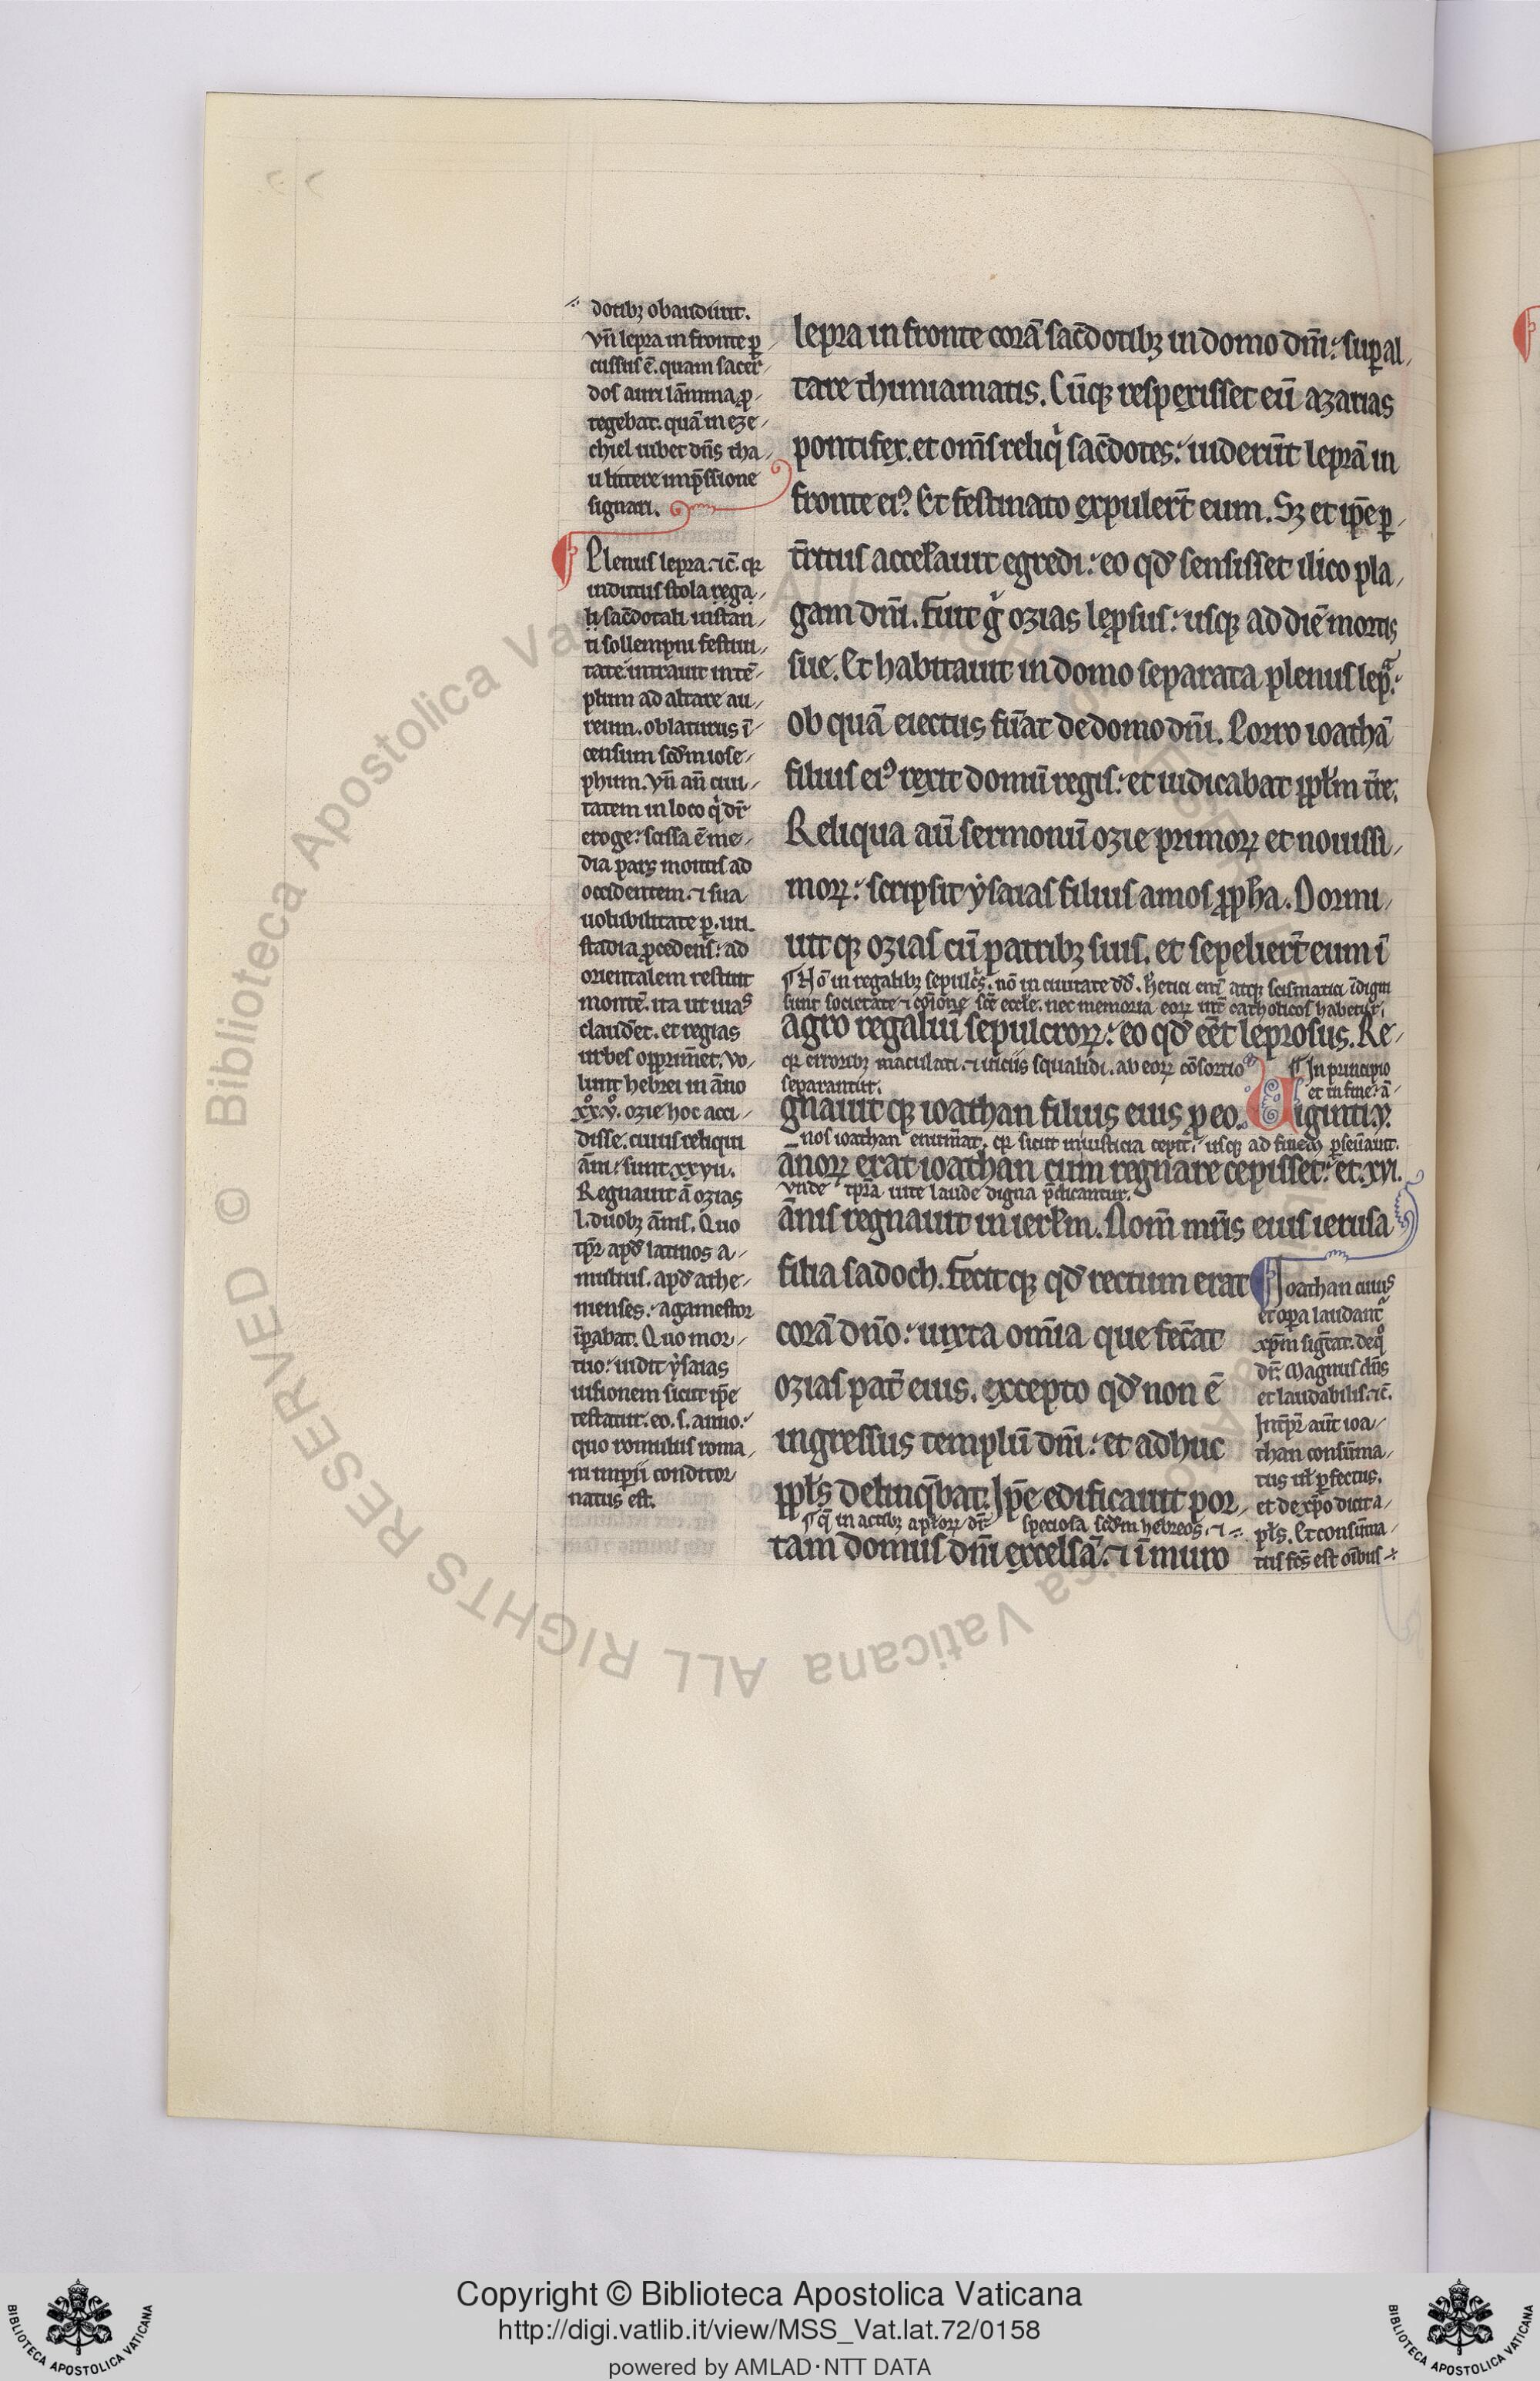 dotibꝫ obaudiuit.
vn̄ lepra in fronte ꝑ
cussus ē. quam sacer
dos auri lāmina ꝓ
tegebat. quā in eze
chiel iubet dn̄s tha
u littere imp̄ssione
signari.
Plenus lepra. ⁊c̄. qꝫ
indutus stola rega
li sac̄dotali instan
ti sollempni festiui
tate. intrauit in tē
plum ad altare au
reum. oblaturus ī
censum scd̄m iose
phum. vn̄ an̄ ciui
tatem in loco q̇ dr̄
eroge. scissa ē me
dia pars montis ad
occidentem. ⁊ sua
uolubilitate ꝑ .iiii.
stadia ꝓcedens. ad
orientalem restitit
montē. ita ut uias
claudet. et regias
urbes opprimet. Vo
lunt hebrei in āno
xx.v. ozie hoc acci
disse. cuius reliqui
āni sunt xxvii.
Regnauit ā ozias
l. duobꝫ ānis. Quo
tp̄r apd̓ latinos a
mulius. apd̓ athe
nienses. agamestor
īꝑabat. Quo mor
tuo. uidit ẏsaias
uisionem sicut ip̄e
testatur. eo .s. anno
quo romulus roma
ni imperii conditor
natus est.
lepra in fronte corā sac̄dotibꝫ in domo dn̄i. suꝑ al
tare thimiamatis. Cūqꝫ respexisset eū azarias
pontifex. et om̄s reliq̇ sac̄dotes. uiderūt leprā in
fronte eiꝰ. Et festinato expuler̄t eum. Sꝫ et ip̄e ꝑ
t̄ritus accel̓auit egredi. eo qd̓ sensisset ilico pla
gam dn̄i. Fuit g̓ ozias lep̱sus. usqꝫ ad diē mortis
sue. Et habitauit in domo separata plenus lepᵃ.
ob quā eiectus fūat de domo dn̄i. Porro ioathā
filius eiꝰ rexit domū regis. et iudicabat ppl̓m t̄re.
Reliqua aū sermonū ozie primoꝝ et nouissi
moꝝ. scripsit ẏsaias filius amos ꝓph̄a. Dormi
uit qꝫ ozias cū patribꝫ suis. et sepelier̄t eum ī
¶ Nō in regalibꝫ sepulc̓s. nō in ciuitate dd̓. h̓etici eni atqꝫ scismatici īdigni
sunt societate ⁊ cōione sc̄e eccl̓e. nec memoria eoꝝ int̄ catholicos habetur.
agro regaliū sepulcroꝝ. eo qd̓ eēt leprosus. Re
qꝫ erroribꝫ maculati. ⁊ uiciis squalidi. ab eoꝝ cōsortio
separantur.
¶ In principio
et in fine ā
gnauit qꝫ ioathan filius eius ꝓ eo. Uiginti .v.
nos ioathan enum̄at. qꝫ sicut in iusticia cepit. usqꝫ ad finem ꝑseuauit.
ānoꝝ erat ioathan cum regnare cepisset. et .xvi.
vnde tp̄ra uite laude digna p̄dicantur.
ānis regnauit in ierl̓m. Nom̄ mr̄is eius ierusa
filia sadoch. Fecit qꝫ qd̓ rectum erat
corā dn̄o. iuxta om̄ia que fec̄at
ozias pat̄ eius. excepto qd̓ non ē
ingressus templū dn̄i. et adhuc
ppl̓s delinq̄bat. Ip̄e edificauit por
¶ q̄ in actibꝫ apl̓oꝝ dr̄ speciosa scd̄m hebreos. ⁊
tam domus dn̄i excelsā. ⁊ ī muro
Ioathan cuius
et oꝑa laudant̄
xp̄m sig̓at. de qͦ
dr̄. Magnus dn̄s
et laudabilis ⁊c̄.
Intp̄r aut̄ ioa
than consūma
tus ul̓ ꝑfectus.
et de xp̄o dicit a
pl̓s. Et consūma
tus fc̄s est oībus
ALL RIGHTS RESERVED © Biblioteca Apostolica Vaticana
BIBLIOTECA APOSTOLICA VATICANA
Copyright © Biblioteca Apostolica Vaticana
http://digi.vatlib.it/view/MSS_Vat.lat.72/0158
powered by AMLAD·NTT DATA
BIBLIOTECA APOSTOLICA VATICANA